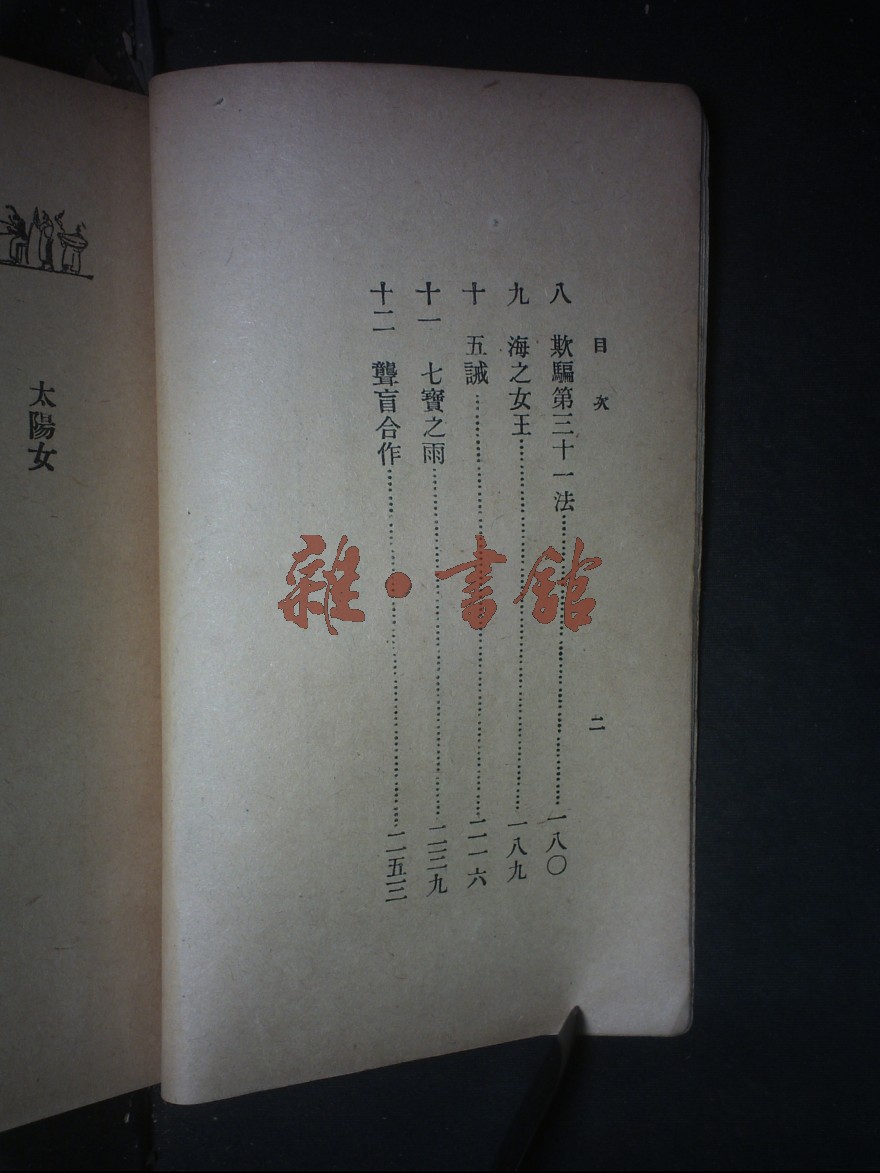 目次 二
八 欺騙第三十一法……一八〇
九 海之女王……一八九
十 五誡……二一六
十一 七寶之雨……二三九
十二 聾盲合作……二五三
太陽女
雜·書館